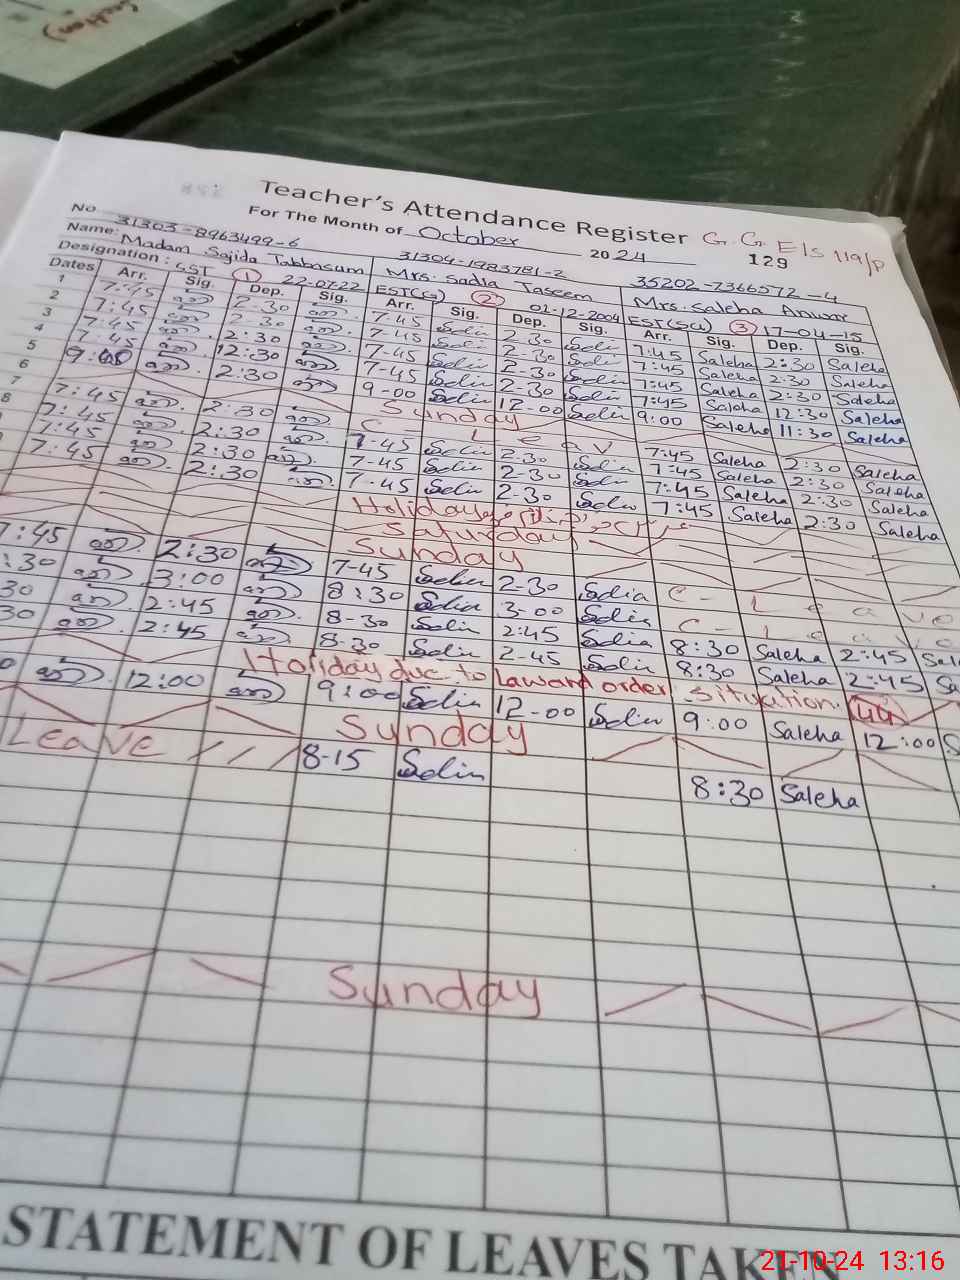 Teacher's Attendance Register G.G.E/S 119/P
For The Month of October 2024 129
No 31303-8963499-6 31304-1983781-2 35202-7366572-4
Name: Madam Sajida Tabbasum Mrs. Sadia Taseem Mrs. Saleha Anwar
Designation: SST 1 22-07-22 EST(G) 2 01-12-2004 EST(SCI) 3 17-04-15
Dates Arr. Sig. Dep. Sig. Arr. Sig. Dep. Sig. Arr. Sig. Dep. Sig.
1 7:45 2:30 7-45 Sadia 2-30 Sadia 7:45 Saleha 2:30 Saleha
2 7:45 2:30 7-45 Sadia 2-30 Sadia 7:45 Saleha 2:30 Saleha
3 7:45 2:30 7-45 Sadia 2-30 Sadia 7:45 Saleha 2:30 Saleha
4 7:45 12:30 7-45 Sadia 2-30 Sadia 7:45 Saleha 12:30 Saleha
5 2:30 9-00 Sadia 12-00 Sadia 9:00 Saleha 11:30 Saleha
6 Sunday
7 7:45 2:30 C - L e a v 7:45 Saleha 2:30 Saleha
8 7:45 2:30 7-45 Sadia 2-30 Sadia 7:45 Saleha 2:30 Saleha
7:45 2:30 7-45 Sadia 2-30 Sadia 7:45 Saleha 2:30 Saleha
7:45 2:30 7-45 Sadia 2-30 Sadia 7:45 Saleha 2:30 Saleha
Holiday
Saturday
Sunday
7:45 2:30 7-45 Sadia 2-30 Sadia C - L e a v e
:30 3:00 8:30 Sadia 3-00 Sadia C - L e a v e
30 2:45 8-30 Sadia 2:45 Sadia 8:30 Saleha 2:45 Sal
30 2:45 8-30 Sadia 2-45 Sadia 8:30 Saleha 2:45 Sa
Holiday due to Lawand order situation. 44
0 12:00 9:00 Sadia 12-00 Sadia 9:00 Saleha 12:00 S
Sunday
Leave 8-15 Sadia 8:30 Saleha
Sunday
STATEMENT OF LEAVES TAKEN
21-10-24 13:16